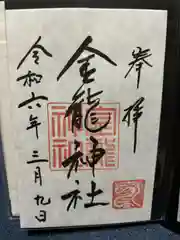 奉拝
金龍神社
令和六年三月九日